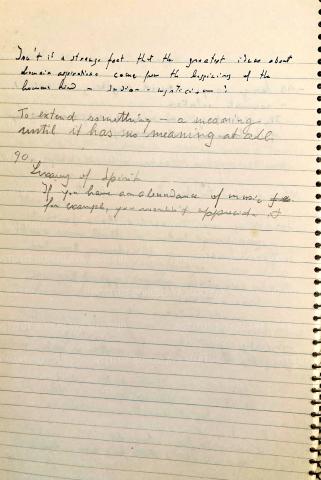 Isn't it a strange fact that the greatest ideas about
human aspirations come from the beginnings of the
human kind - Indian mysticism ?
To extend something - a meaning
until it has no meaning at all.
90.
Luxury of Spirit
If you have an abundance of music
for example, you wouldn't appreciate it